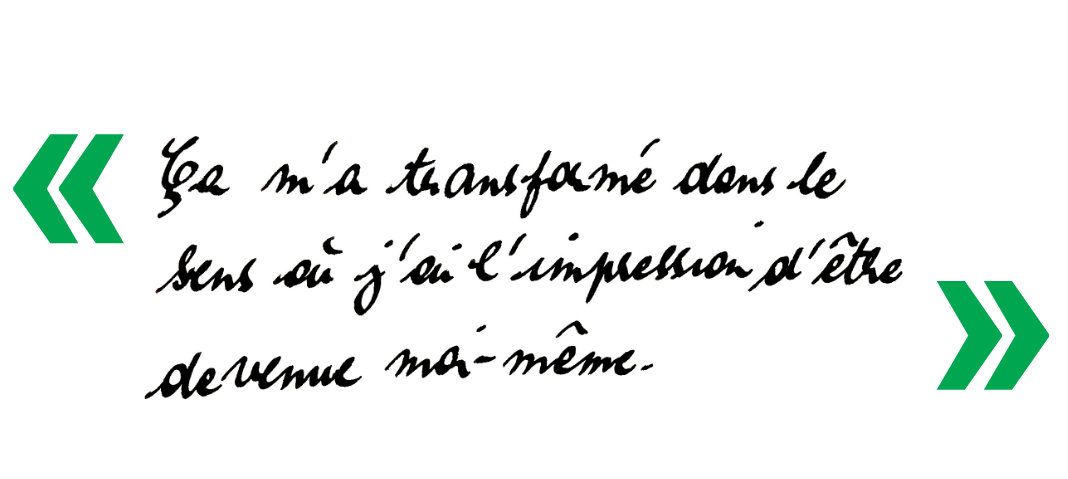 « Ça m'a transformé dans le
sens où j'ai l'impression d'être
devenue moi-même. »